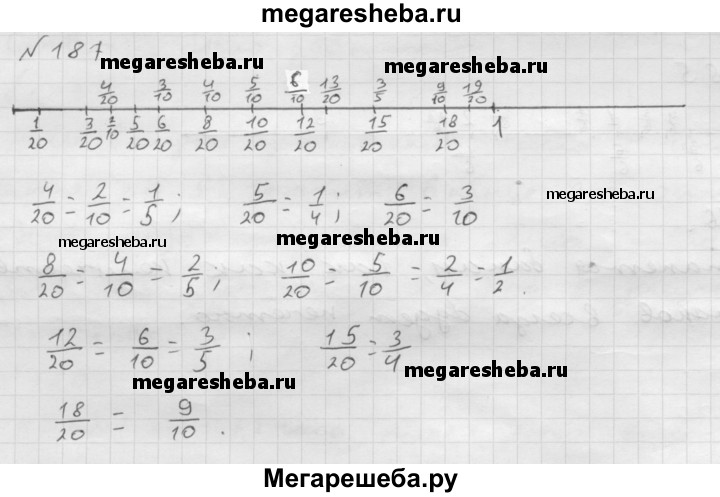 megaresheba.ru
№187
megaresheba.ru megaresheba.ru
4/20 3/10 4/10 5/10 6/10 13/20 3/5 9/10 19/20
1/20 3/20 2/10 5/20 6/20 8/20 10/20 12/20 15/20 18/20 1
4/20 = 2/10 = 1/5; 5/20 = 1/4; 6/20 = 3/10
megaresheba.ru
megaresheba.ru megaresheba.ru
8/20 = 4/10 = 2/5; 10/20 = 5/10 = 2/4 = 1/2.
12/20 = 6/10 = 3/5; 15/20 = 3/4
megaresheba.ru megaresheba.ru
18/20 = 9/10.
Мегарешеба.ру